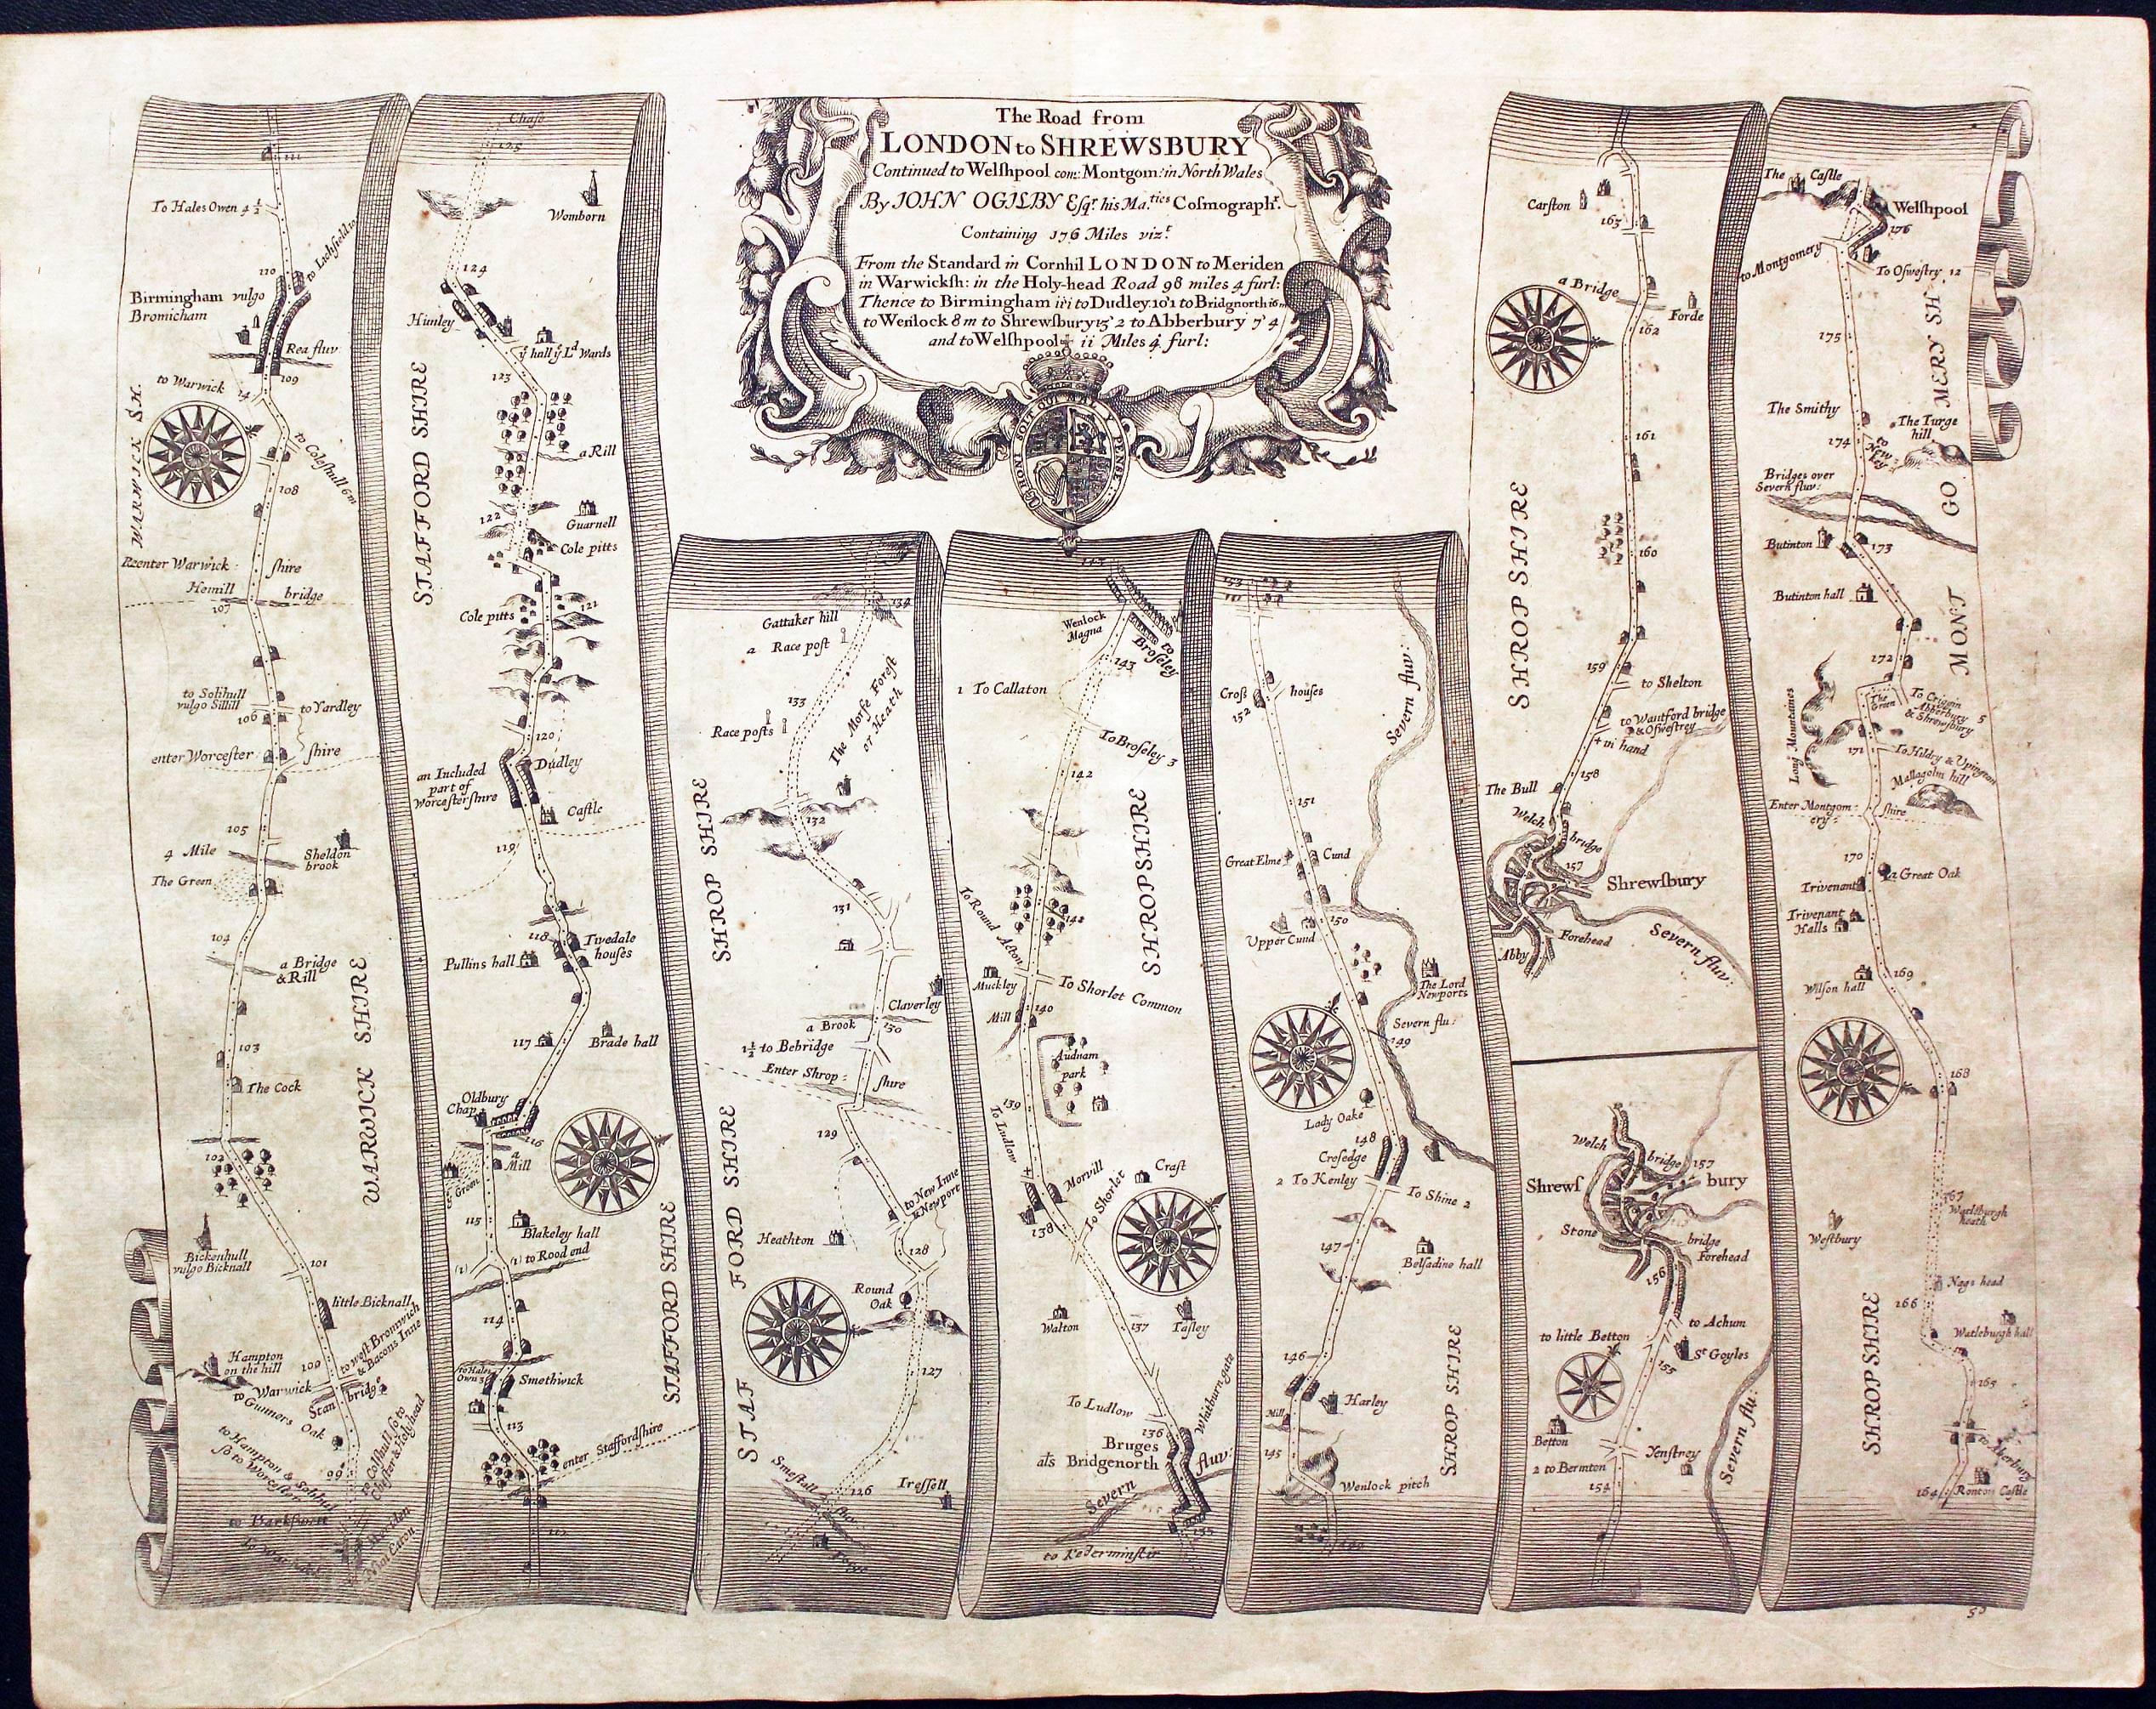 The Road from
LONDON to SHREWSBURY
Continued to Welſhpool com: Montgom: in North Wales
By JOHN OGILBY Eſqr. his Ma.ties Coſmographr.
Containing 176 Miles vizt.
From the Standard in Cornhil LONDON to Meriden
in Warwickſh: in the Holy-head Road 98 miles 4 furl:
Thence to Birmingham ii'i to Dudley 10'1 to Bridgnorth 16m
to Wenlock 8 m to Shrewſbury 13'2 to Abberbury 7'4
and to Welſhpool ii Miles 4 furl:
HONI SOIT QUI MAL Y PENSE
111
To Hales Owen 4 1/2
to Lichfield
110
Birmingham vulgo
Bromicham
Rea fluv
109
to Warwick
14
WARWICK SH.
to Coleshull 6m
108
Reenter Warwick: ſhire
Hemill bridge
107
to Solihull
vulgo Sillill
106
to Yardley
enter Worceſter ſhire
105
4 Mile
Sheldon
brook
The Green
104
a Bridge
& Rill
WARWICK SHIRE
103
The Cock
102
Bickenhull
vulgo Bicknall
101
little Bicknall
Hampton
on the hill
100
to weſt Bromwich
& Bacons Inne
to Warwick
Stan bridge
to Gunners Oak
to Hampton & Solihul
to Worceſter
99
to Coſhull &c to
Cheſter & Holyhead
Meriden
Chaſe
125
Womborn
124
Himley
ye hall ye Ld Wards
123
STAFFORD SHIRE
a Rill
122
Guarnell
Cole pitts
121
Cole pitts
120
Dudley
an Included
part of
Worceſterſhire
Caſtle
119
118
Tivedale
houſes
Pullins hall
117
Brade hall
Oldbury
Chap.
116
a
Mill
Green
115
Blakeley hall
(1) (1) to Rood end
STAFFORD SHIRE
114
to Hales
Own 3
Smethwick
113
enter Staffordſhire
112
134
Gattaker hill
a Race poſt
133
The Morfe Foreſt
or Heath
Race poſts
132
SHROP SHIRE
131
Claverley
a Brook
130
1 1/2 to Bebridge
Enter Shrop: ſhire
129
to New Inne
& Newport
STAF FORD SHIRE
Heathton
128
Round
Oak
127
Smeſtall fluv
126
Treſſell
Wenlock
Magna
to
Broſeley
143
1 To Callaton
To Broſeley 3
142
SHROPSHIRE
to Round Acton
142
Muckley
To Shorlet Common
Mill
140
Audnam
park
139
to Ludlow
Morvill
Craft
to Shorlet
138
Walton
137
Taſley
To Ludlow
136
Whitburn gate
Bruges
als Bridgenorth
Severn fluv:
135
to Kederminſtir
153
Severn fluv:
Croſs houſes
152
151
Great Elme
Cund
150
Upper Cund
The Lord
Newports
Severn flu:
149
Lady Oake
148
Creſedge
2 To Kenley
To Shine 2
147
Belſadine hall
146
Harley
Mill
145
SHROP SHIRE
Wenlock pitch
Carſton
163
a Bridge
Forde
162
161
SHROP SHIRE
160
159
to Shelton
to Wantford bridge
& Oſweſtrey
+ in hand
158
The Bull
Welch bridge
157
Shrewſbury
Forehead
Abby
Severn fluv:
Welch bridge
157
Shrewſ bury
Stone bridge
Forehead
156
to Achum
to little Betton
St Goyles
155
Betton
Yenſtrey
2 to Bermton
154
Severn flu:
The Caſtle
Welſhpool
176
to Montgomery
To Oſweſtry 12
175
The Smithy
The Turge
hill
174
to
New
Bridges over
Severn fluv:
MONT GO MERY SH
Butinton
173
Butinton hall
172
The
Green
To Criggin
Abberbury 5
& Shrewſbury
Long Mountains
171
To Hildry & Upington
Mallagolm hill
Enter Montgom: ſhire
ery:
170
a Great Oak
Trivenant
Trivenant
Halls
169
Wilſon hall
168
167
Watlſburgh
heath
Weſtbury
Nags head
166
Watleburgh hall
165
SHROP SHIRE
to Alerbury
164
Ronton Caſtle